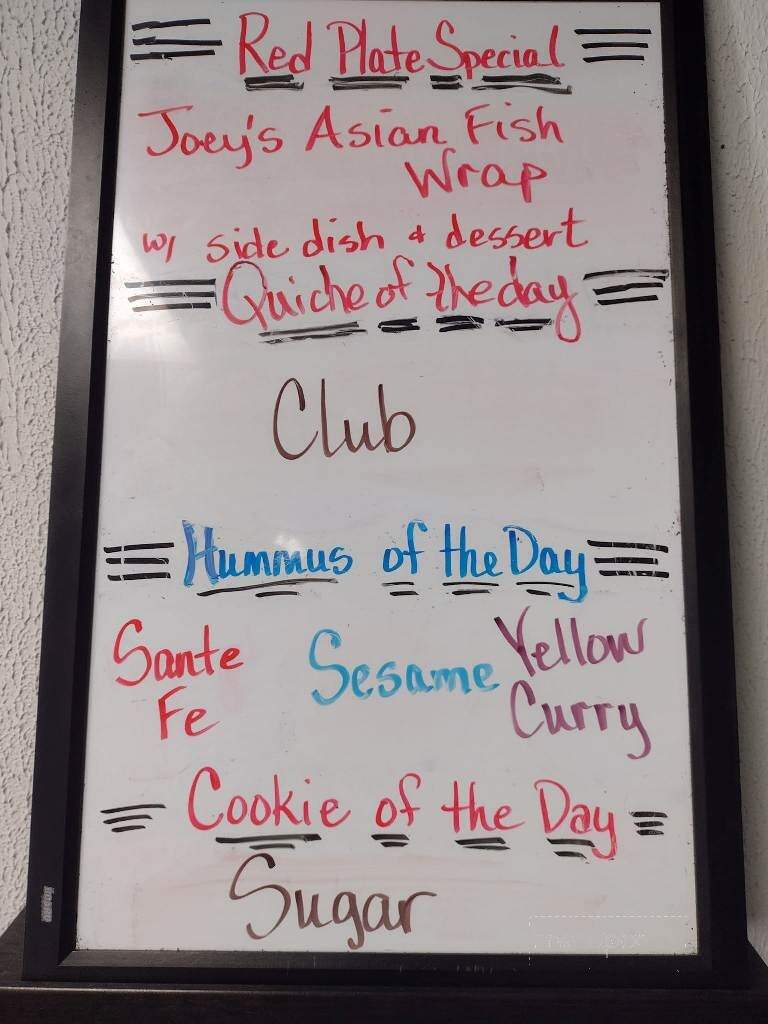 Red Plate Special
Joey's Asian Fish
Wrap
w/ side dish & dessert
Quiche of the day
Club
Hummus of the Day
Sante Sesame Yellow
Fe Curry
Cookie of the Day
Sugar